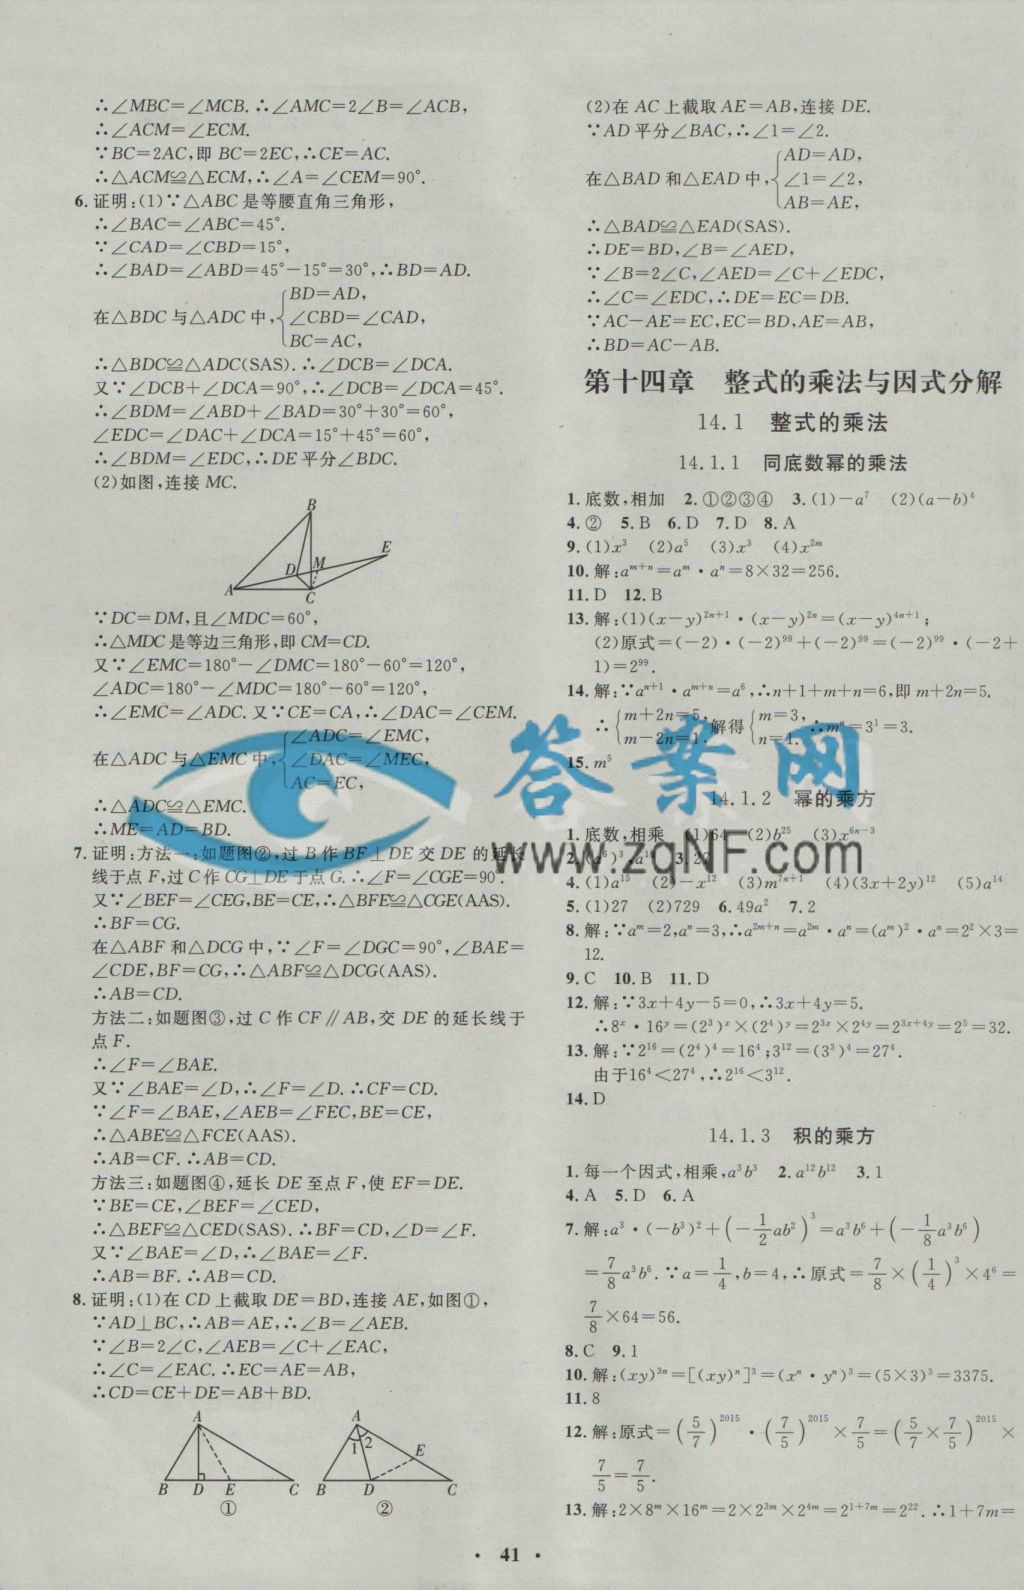 ∴∠MBC=∠MCB.∴∠AMC=2∠B=∠ACB,
∴∠ACM=∠ECM.
∵BC=2AC,即 BC=2EC,∴CE=AC.
∴△ACM≌△ECM,∴∠A=∠CEM=90°.
6.证明:(1)∵△ABC是等腰直角三角形,
∴∠BAC=∠ABC=45°.
∵∠CAD=∠CBD=15°,
∴∠BAD=∠ABD=45°-15°=30°,∴BD=AD.
BD=AD,
在△BDC与△ADC中,∠CBD=∠CAD,
BC=AC,
∴△BDC≌△ADC(SAS).∴∠DCB=∠DCA.
又∵∠DCB+∠DCA=90°,∴∠DCB=∠DCA=45°.
∴∠BDM=∠ABD+∠BAD=30°+30°=60°,
∠EDC=∠DAC+∠DCA=15°+45°=60°,
∴∠BDM=∠EDC,∴DE平分∠BDC.
(2)如图,连接MC.
B
E
D M
A C
∵DC=DM,且∠MDC=60°,
∴△MDC是等边三角形,即CM=CD.
又∵∠EMC=180°-∠DMC=180°-60°=120°,
∠ADC=180°-∠MDC=180°-60°=120°,
∴∠EMC=∠ADC.又∵CE=CA,∴∠DAC=∠CEM.
∠ADC=∠EMC,
在△ADC与△EMC中,∠DAC=∠MEC,
AC=EC,
∴△ADC≌△EMC.
∴ME=AD=BD.
7.证明:方法一:如题图②,过B作BF⊥DE交DE的延长
线于点F,过C作CG⊥DE于点G.∴∠F=∠CGE=90°.
又∵∠BEF=∠CEG,BE=CE,∴△BFE≌△CGE(AAS).
∴BF=CG.
在△ABF和△DCG中,∵∠F=∠DGC=90°,∠BAE=
∠CDE,BF=CG,∴△ABF≌△DCG(AAS).
∴AB=CD.
方法二:如题图③,过C作CF∥AB,交DE的延长线于
点F.
∴∠F=∠BAE.
又∵∠BAE=∠D,∴∠F=∠D.∴CF=CD.
∵∠F=∠BAE,∠AEB=∠FEC,BE=CE,
∴△ABE≌△FCE(AAS).
∴AB=CF.∴AB=CD.
方法三:如题图④,延长DE至点F,使EF=DE.
∵BE=CE,∠BEF=∠CED,
∴△BEF≌△CED(SAS).∴BF=CD,∠D=∠F.
又∵∠BAE=∠D,∴∠BAE=∠F.
∴AB=BF.∴AB=CD.
8.证明:(1)在CD上截取DE=BD,连接AE,如图①,
∵AD⊥BC,∴AB=AE,∴∠B=∠AEB.
∵∠B=2∠C,∠AEB=∠C+∠EAC,
∴∠C=∠EAC.∴EC=AE=AB,
∴CD=CE+DE=AB+BD.
A
B D E C
①
A
1 2 E
B D C
②
(2)在AC上截取AE=AB,连接DE.
∵AD平分∠BAC,∴∠1=∠2.
AD=AD,
在△BAD和△EAD中,∠1=∠2,
AB=AE,
∴△BAD≌△EAD(SAS).
∴DE=BD,∠B=∠AED,
∵∠B=2∠C,∠AED=∠C+∠EDC,
∴∠C=∠EDC,∴DE=EC=DB.
∵AC-AE=EC,EC=BD,AE=AB,
∴BD=AC-AB.
第十四章 整式的乘法与因式分解
14.1 整式的乘法
14.1.1 同底数幂的乘法
1.底数,相加 2.①②③④ 3.(1)-a⁷ (2)(a-b)⁴
4.② 5.B 6.D 7.D 8.A
9.(1)x³ (2)a⁵ (3)x³ (4)x²ᵐ
10.解:aᵐ⁺ⁿ=aᵐ·aⁿ=8×32=256.
11.D 12.B
13.解:(1)(x-y)²ⁿ⁺¹·(x-y)²ⁿ=(x-y)⁴ⁿ⁺¹;
(2)原式=(-2)·(-2)⁹⁹+(-2)⁹⁹=(-2)⁹⁹·(-2+
1)=2⁹⁹.
14.解:∵aⁿ⁺¹·aᵐ⁺ⁿ=a⁶,∴n+1+m+n=6,即m+2n=5.
∴{m+2n=5, m-2n=1. 解得{m=3, n=1. ∴mⁿ=3¹=3.
15.m⁵
14.1.2 幂的乘方
1.底数,相乘 (1)64 (2)b²⁵ (3)x⁶ⁿ⁻³
2.(a⁶)³,a¹⁸ 3.27
4.(1)a¹⁵ (2)-x¹² (3)m⁷ⁿ⁺¹ (4)(3x+2y)¹² (5)a¹⁴
5.(1)27 (2)729 6.49a² 7.2
8.解:∵aᵐ=2,aⁿ=3,∴a²ᵐ⁺ⁿ=a²ᵐ·aⁿ=(aᵐ)²·aⁿ=2²×3=
12.
9.C 10.B 11.D
12.解:∵3x+4y-5=0,∴3x+4y=5.
∴8ˣ·16ʸ=(2³)ˣ×(2⁴)ʸ=2³ˣ×2⁴ʸ=2³ˣ⁺⁴ʸ=2⁵=32.
13.解:∵2¹⁶=(2⁴)⁴=16⁴;3¹²=(3³)⁴=27⁴.
由于16⁴<27⁴,∴2¹⁶<3¹².
14.D
14.1.3 积的乘方
1.每一个因式,相乘,a³b³ 2.a¹²b¹² 3.1
4.A 5.D 6.A
7.解:a³·(-b³)²+(-1/2ab²)³=a³b⁶+(-1/8a³b⁶)
=7/8a³b⁶.∵a=1/4,b=4,∴原式=7/8×(1/4)³×4⁶=
7/8×64=56.
8.C 9.1
10.解:(xy)³ⁿ=[(xy)ⁿ]³=(xⁿ·yⁿ)³=(5×3)³=3375.
11.8
12.解:原式=(5/7)²⁰¹⁵·(7/5)²⁰¹⁵×7/5=(5/7×7/5)²⁰¹⁵×
7/5=7/5.
13.解:2×8ᵐ×16ᵐ=2×2³ᵐ×2⁴ᵐ=2¹⁺⁷ᵐ=2²².∴1+7m=
答案网
www.zqNF.com
·41·